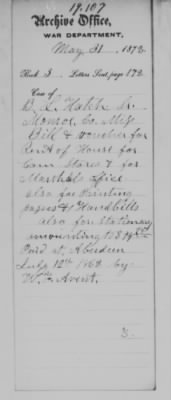 19.107
Archive Office,
WAR DEPARTMENT,
May 31, 1872
Book 5 Letters Sent, page 172
Case of
B. L. Hatch Sr.
Monroe Co. Miss
Bill & voucher for
Rent of House for
Com Stores & for
Marshal office
also for Printing
papers & Handbills
also for Stationary
amounting to $
Paid at Aberdeen
July 12th 1862 by
W. Avent.
3.